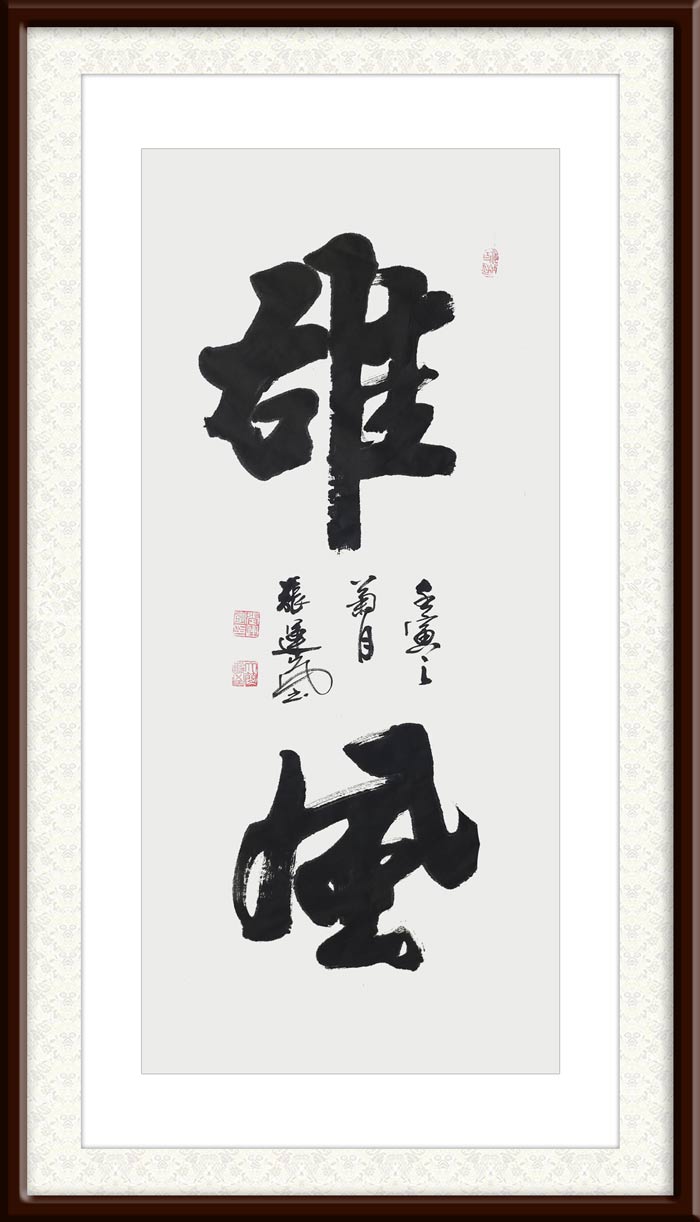 雄
壬寅之
菊月
張運
風